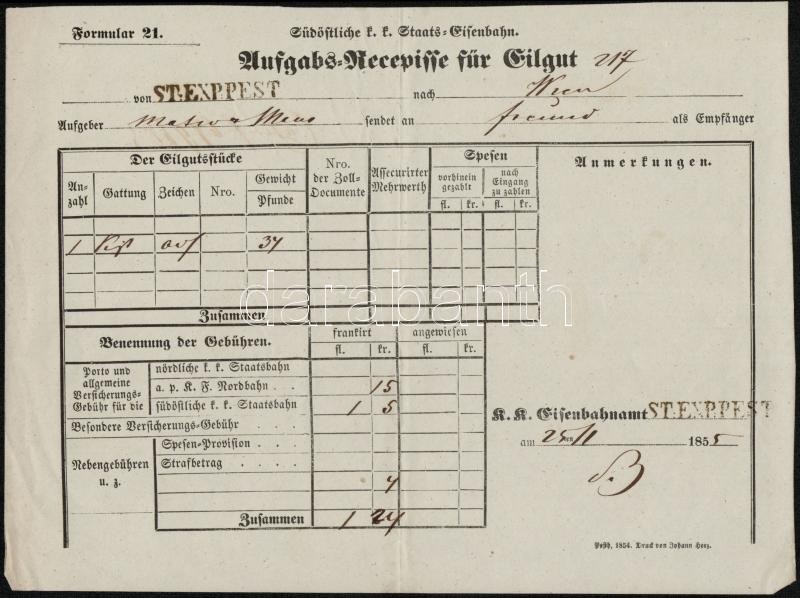 Formular 21.
Südöstliche k. k. Staats-Eisenbahn.
Aufgabs-Recepisse für Eilgut 217
von ST:EXP.PEST nach Wien
Aufgeber sendet an Freund als Empfänger
Der Eilgutsstücke
Nro. der Zoll-Documente
Assecurirter Mehrwerth
Spesen
Anmerkungen.
vorhinein gezahlt
nach Eingang zu zahlen
Anzahl Gattung Zeichen Nro. Gewicht Pfunde
fl. kr. fl. kr.
1 Kist 37
Zusammen
Benennung der Gebühren.
frankirt angewiesen
fl. kr. fl. kr.
Porto und allgemeine Versicherungs-Gebühr für die
nördliche k. k. Staatsbahn
a. p. K. F. Nordbahn . . 15
südöstliche k. k. Staatsbahn 1 5
Besondere Versicherungs-Gebühr . . .
Nebengebühren u. z.
Spesen-Provision . . . .
Strafbetrag . . . .
4
Zusammen 1 24
K. K. Eisenbahnamt ST:EXP.PEST
am 25ten 11 1855
Pesth, 1854. Druck von Johann Herz.
darabanth